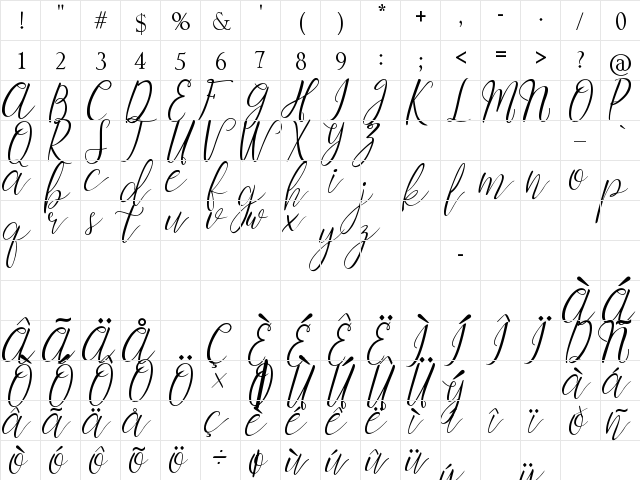 ! " # $ % & ' ( ) * + , - . / 0
1 2 3 4 5 6 7 8 9 : ; < = > ? @
A B C D E F G H I J K L M N O P
Q R S T U V W X Y Z _ `
a b c d e f g h i j k l m n o p
q r s t u v w x y z
-
À Á
Â Ã Ä Å Ç È É Ê Ë Ì Í Î Ï Ð Ñ
Ò Ó Ô Õ Ö × Ø Ù Ú Û Ü Ý à á
â ã ä å ç è é ê ë ì í î ï ð ñ
ò ó ô õ ö ÷ ø ù ú û ü ý ÿ